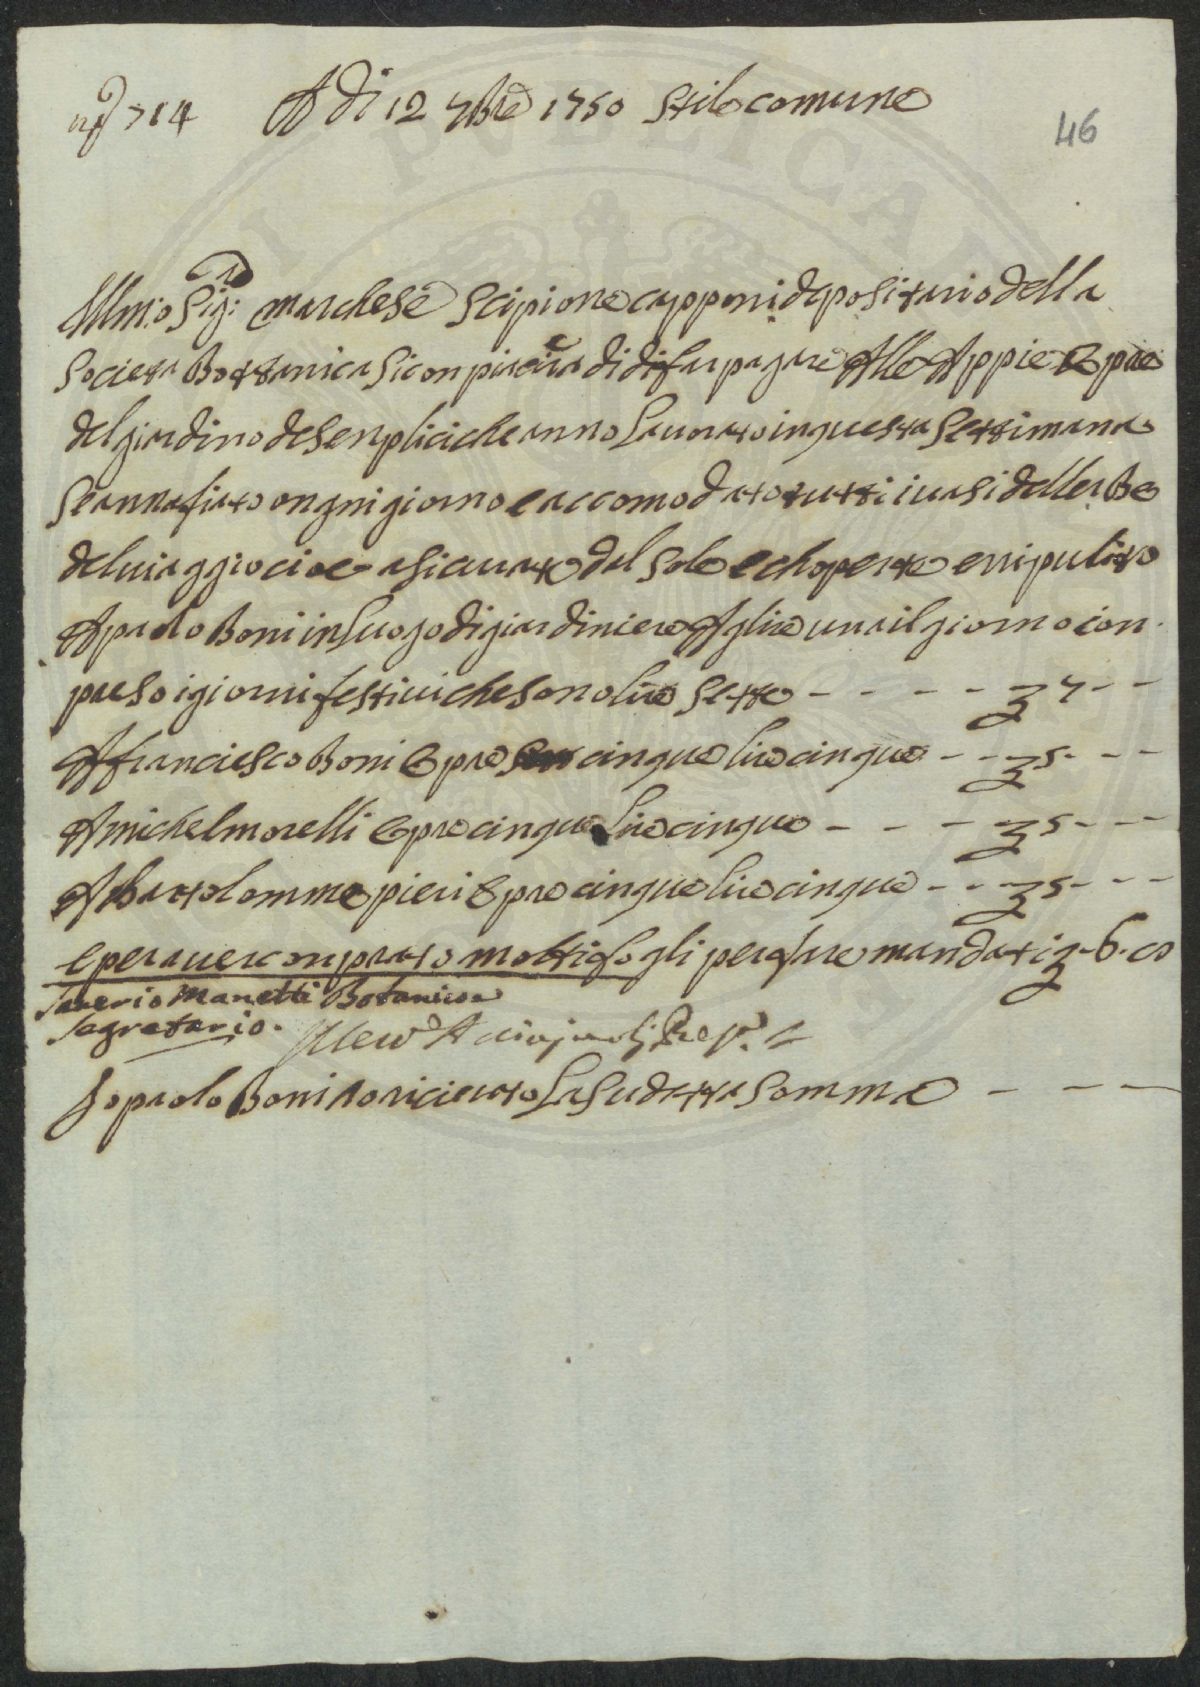 n.º 714 A dì 12 7bre 1750 Stile comune
46
Illm:o Sig: marchese Scipione capponi depositario della
Societa Bottanica Si conpiacera di di far pagare Alle Appie Opre
del giardino de Senplici che anno Lauorato in questa Settimana
Se annafiato ongni giorno e accomodato tutti i uasi dellerbe
del uiaggio cioe asicurate dal Sole e choperte e rripulito
A paolo Boni in Luogo di giardiniere A lire una il giorno con
preso i giorni festiui che sono lire Sette - - - - 7 - -
A franciesco Boni Opre cinque lire cinque - - 5 - -
A michel morelli Opre cinque Lire cinque - - - 5 - - -
A Bartolommeo pieri Opre cinque lire cinque - - - 5 - - -
e per auer conprato molti fogli per fare mandati - 6 -
Saverio Manetti Botanico e
Segretario.
Io paolo Boni o riceuuto La Sudetta Somma - - -